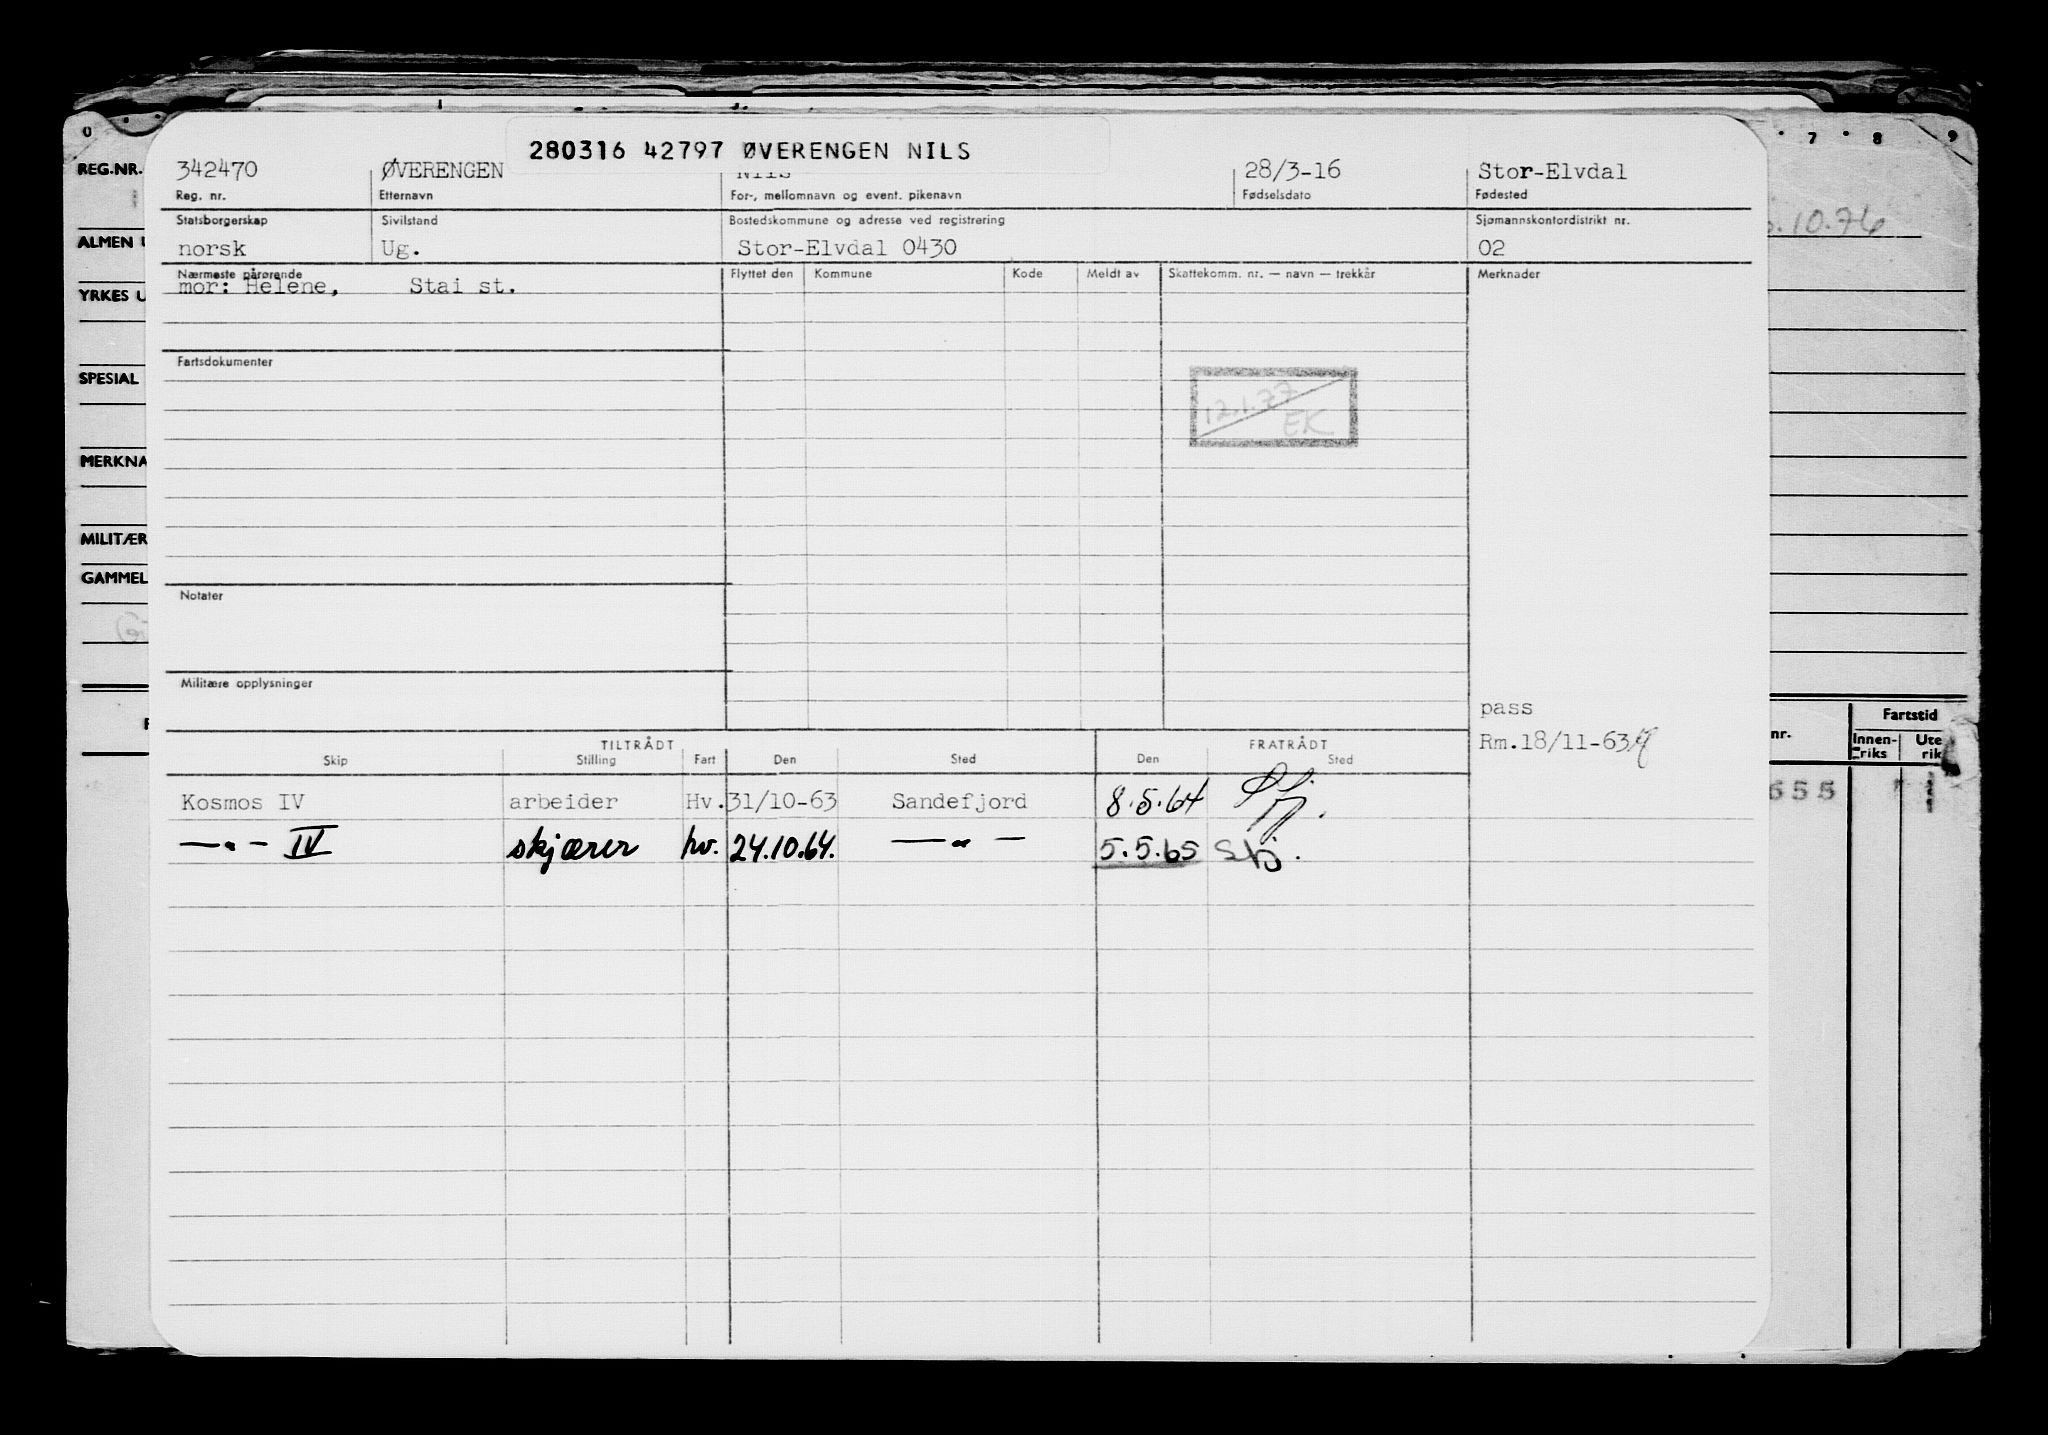 280316 42797 ØVERENGEN NILS
342470 ØVERENGEN Nils 28/3-16 Stor-Elvdal
Reg. nr. Etternavn For-, mellomnavn og event. pikenavn Fødselsdato Fødested
Statsborgerskap Sivilstand Bostedskommune og adresse ved registrering Sjømannskontordistrikt nr.
norsk Ug. Stor-Elvdal 0430 02
Nærmeste pårørende Flyttet den Kommune Kode Meldt av Skattekomm. nr. — navn — trekkår Merknader
mor: Helene, Stai st.
Fartsdokumenter
12.1.77
EK
Notater
Militære opplysninger
pass
Rm.18/11-63
TILTRÅDT FRATRÅDT
Skip Stilling Fart Den Sted Den Sted
Kosmos IV arbeider Hv. 31/10-63 Sandefjord 8.5.64 Sfj.
—„— IV skjærer hv. 24.10.64. —„— 5.5.65 Sfj.
0 7 8 9
REG.NR.
.10.76
ALMEN U
YRKES U
SPESIAL
MERKNA
MILITÆR
GAMMEL
nr. Fartstid
Innen-riks Ute rik
655